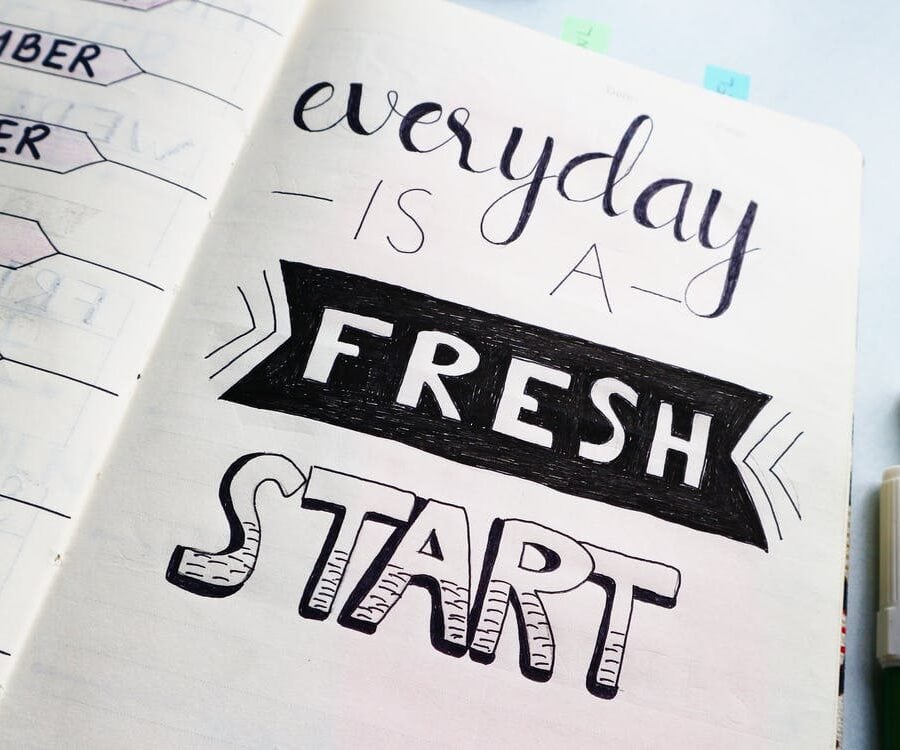 MBER
ER
everyday
— IS A —
FRESH
START